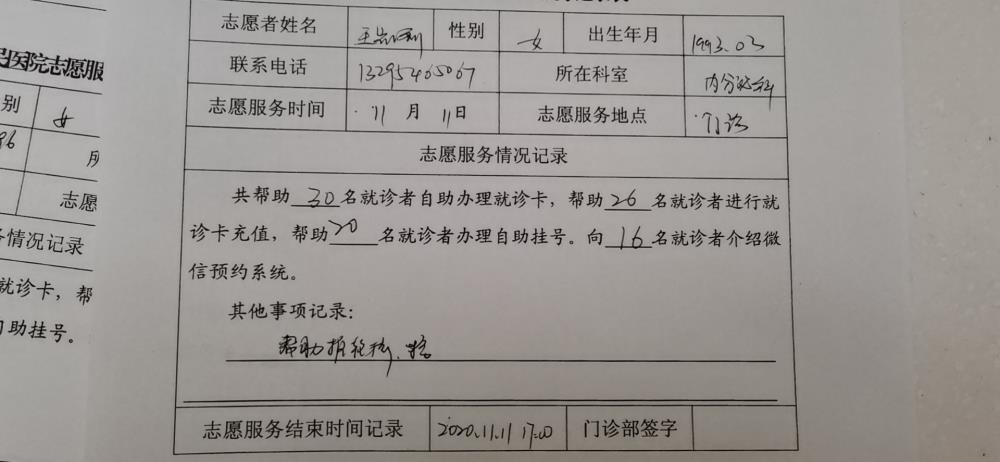 志愿者姓名 性别 女 出生年月 1993.03
联系电话 13295465067 所在科室 内分泌科
志愿服务时间 11 月 11日 志愿服务地点 门诊
志愿服务情况记录
共帮助 30 名就诊者自助办理就诊卡，帮助 26 名就诊者进行就
诊卡充值，帮助 20 名就诊者办理自助挂号。向 16 名就诊者介绍微
信预约系统。
其他事项记录：
帮助推轮椅、
志愿服务结束时间记录 2020.11.11 17:00 门诊部签字
民医院志愿服
别 女
96 所
志愿
务情况记录
就诊卡，帮
自助挂号。